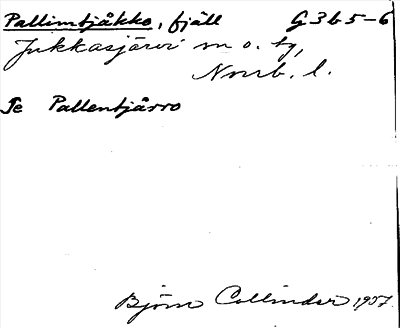 Pallimtjåkko, fjäll G 3 b 5-6
Jukkasjärvi sn o. tg,
Norrb. l.
Se Pallentjårro
Björn Collinder 1957.